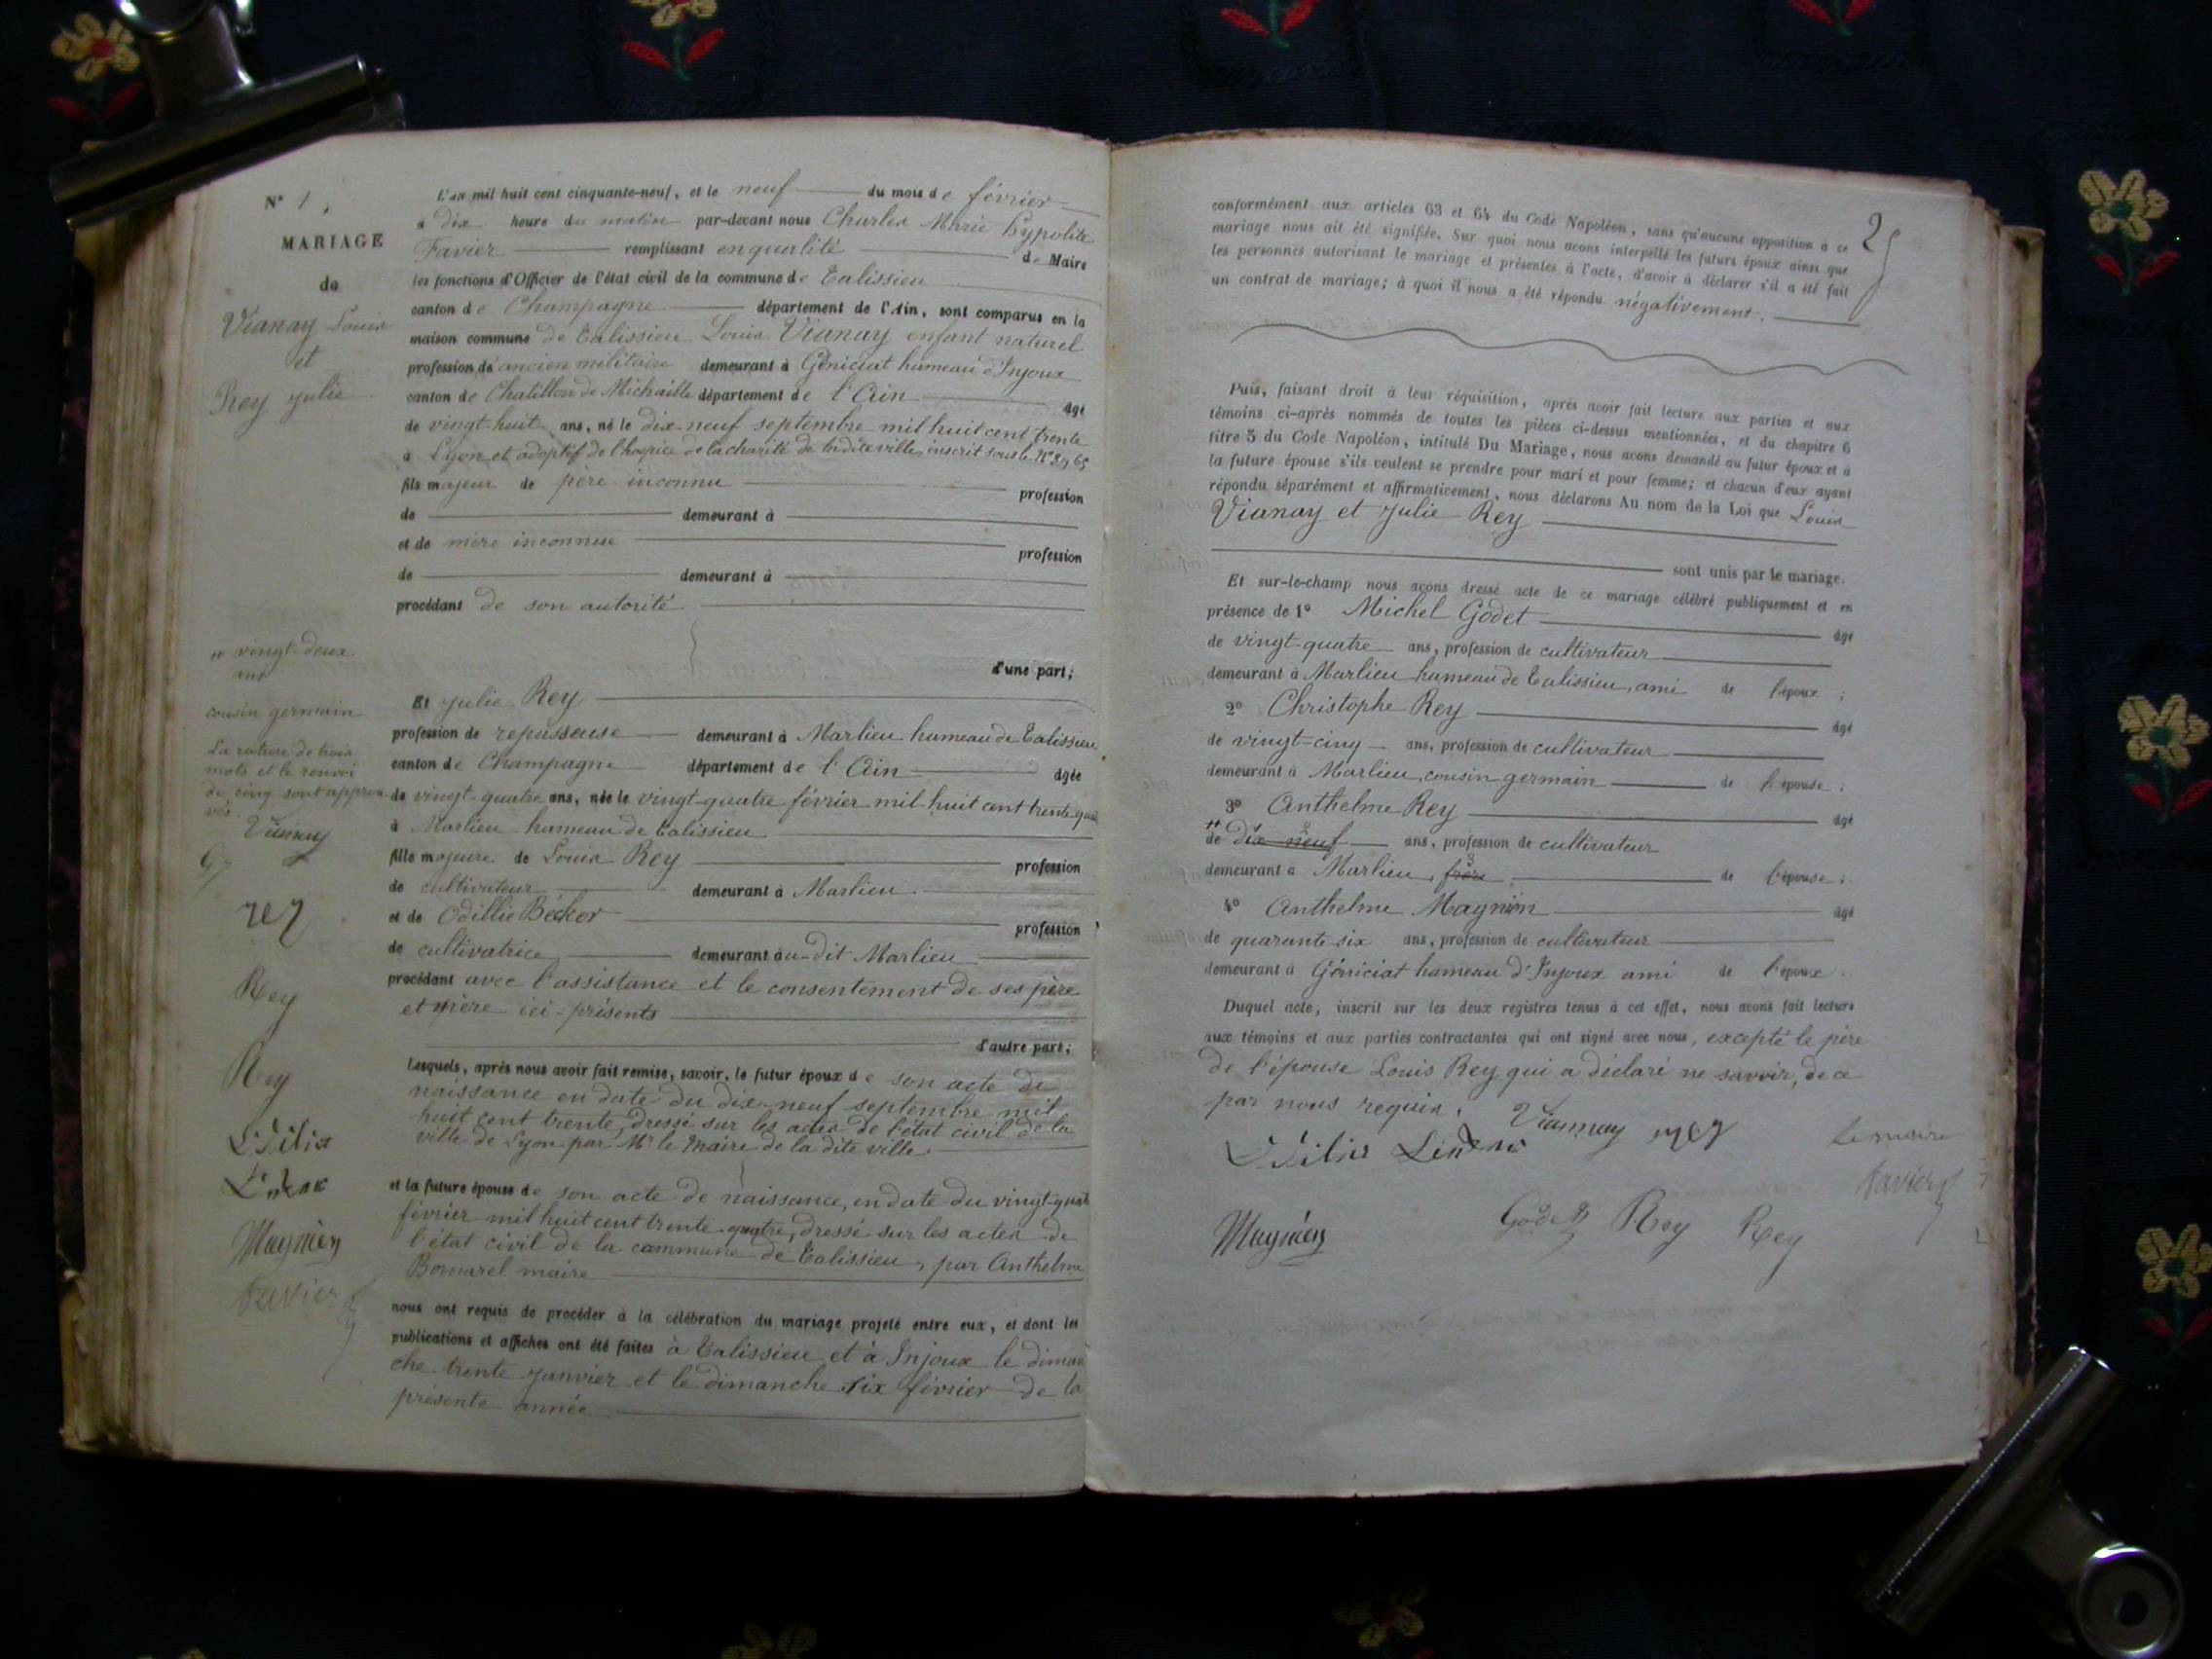 N° 1.
MARIAGE
de
Vianay Louis
et
Rey Julie
L'an mil huit cent cinquante-neuf, et le neuf du mois de février
à dix heure du matin par-devant nous Charles Marie Hypolite
Favier remplissant en qualité de Maire
les fonctions d'Officier de l'état civil de la commune de Talissieu
canton de Champagne département de l'Ain, sont comparus en la
maison commune de Talissieu Louis Vianay enfant naturel
profession de ancien militaire demeurant à Géniciat hameau d'Injoux
canton de Chatillon de Michaille département de l'Ain âgé
de vingt huit ans, né le dix-neuf septembre mil huit cent trente
à Lyon et adoptif de l'hospice de la charité de la dite ville, inscrit sous le N°
fils majeur de père inconnu profession
de demeurant à
et de mère inconnue profession
de demeurant à
procédant de son autorité
d'une part;
Et Julie Rey
profession de repasseuse demeurant à Marlieu hameau de Talissieu
canton de Champagne département de l'Ain âgée
de vingt-quatre ans, née le vingt-quatre février mil huit cent trente-qua
à Marlieu hameau de Talissieu
fille majeure de Louis Rey profession
de cultivateur demeurant à Marlieu
et de Odillie Béckor profession
de cultivatrice demeurant au-dit Marlieu
procédant avec l'assistance et le consentement de ses père
et mère ici-présents
d'autre part;
Lesquels, après nous avoir fait remise, savoir, le futur époux de son acte de
naissance en date du dix-neuf septembre mil
huit cent trente, dressé sur les actes de l'état civil de la
ville de Lyon par Mr le Maire de la dite ville
et la future épouse de son acte de naissance, en date du vingt-quat
février mil huit cent trente-quatre, dressé sur les actes de
l'état civil de la commune de Talissieu, par Anthelme
Bonnarel maire
nous ont requis de procéder à la célébration du mariage projeté entre eux, et dont les
publications et affiches ont été faites à Talissieu et à Injoux le diman
che trente janvier et le dimanche six février de la
présente année
vingt-deux
ans
cousin germain
La rature de trois
mots et le renvoi
de cinq sont approu
vés.
Vianay
G
rey
Rey
Rey
Odilia
Magnien
Favier
25
conformément aux articles 63 et 64 du Code Napoléon, sans qu'aucune opposition à ce
mariage nous ait été signifiée. Sur quoi nous avons interpellé les futurs époux ainsi que
les personnes autorisant le mariage et présentes à l'acte, d'avoir à déclarer s'il a été fait
un contrat de mariage; à quoi il nous a été répondu négativement.
Puis, faisant droit à leur réquisition, après avoir fait lecture aux parties et aux
témoins ci-après nommés de toutes les pièces ci-dessus mentionnées, et du chapitre 6
titre 5 du Code Napoléon, intitulé Du Mariage, nous avons demandé au futur époux et à
la future épouse s'ils veulent se prendre pour mari et pour femme; et chacun d'eux ayant
répondu séparément et affirmativement, nous déclarons Au nom de la Loi que Louis
Vianay et Julie Rey
sont unis par le mariage.
Et sur-le-champ nous avons dressé acte de ce mariage célébré publiquement et en
présence de 1° Michel Godet âgé
de vingt-quatre ans, profession de cultivateur
demeurant à Marlieu hameau de Talissieu, ami de l'époux;
2° Christophe Rey âgé
de vingt-cinq ans, profession de cultivateur
demeurant à Marlieu, cousin germain de l'épouse;
3° Anthelme Rey âgé
de dix neuf ans, profession de cultivateur
demeurant à Marlieu, frère de l'épouse;
4° Anthelme Magnion âgé
de quarante-six ans, profession de cultivateur
demeurant à Géniciat hameau d'Injoux ami de l'époux.
Duquel acte, inscrit sur les deux registres tenus à cet effet, nous avons fait lecture
aux témoins et aux parties contractantes qui ont signé avec nous, excepté le père
de l'épouse Louis Rey qui a déclaré ne savoir, de ce
par nous requis.
Viannay rey Le maire
Odilia
Favier
Godet Rey Rey
Magnien